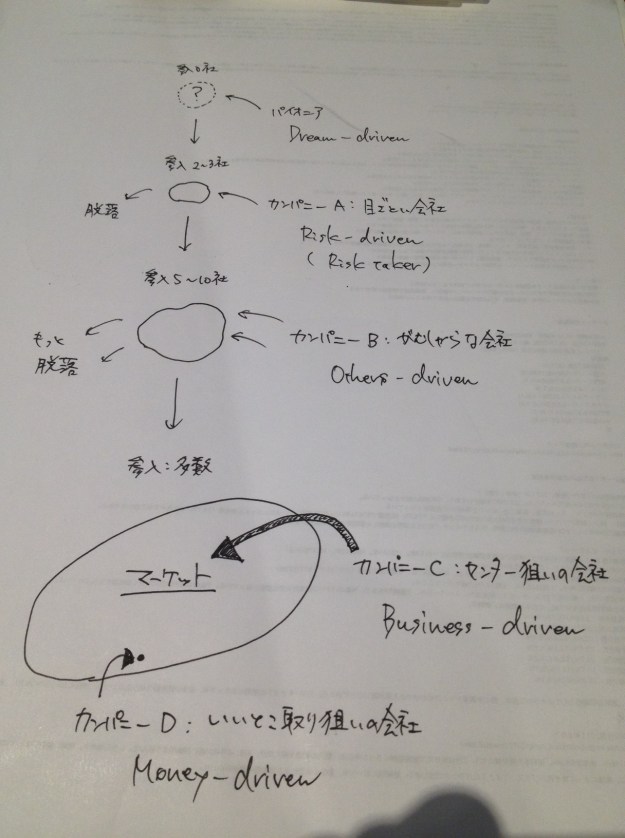 参入0社
?
パイオニア
Dream-driven
参入2~3社
脱落
カンパニーA:目ざとい会社
Risk-driven
(Risk taker)
参入5~10社
もっと
脱落
カンパニーB:がむしゃらな会社
Others-driven
参入:多数
マーケット
カンパニーC:センター狙いの会社
Business-driven
カンパニーD:いいとこ取り狙いの会社
Money-driven